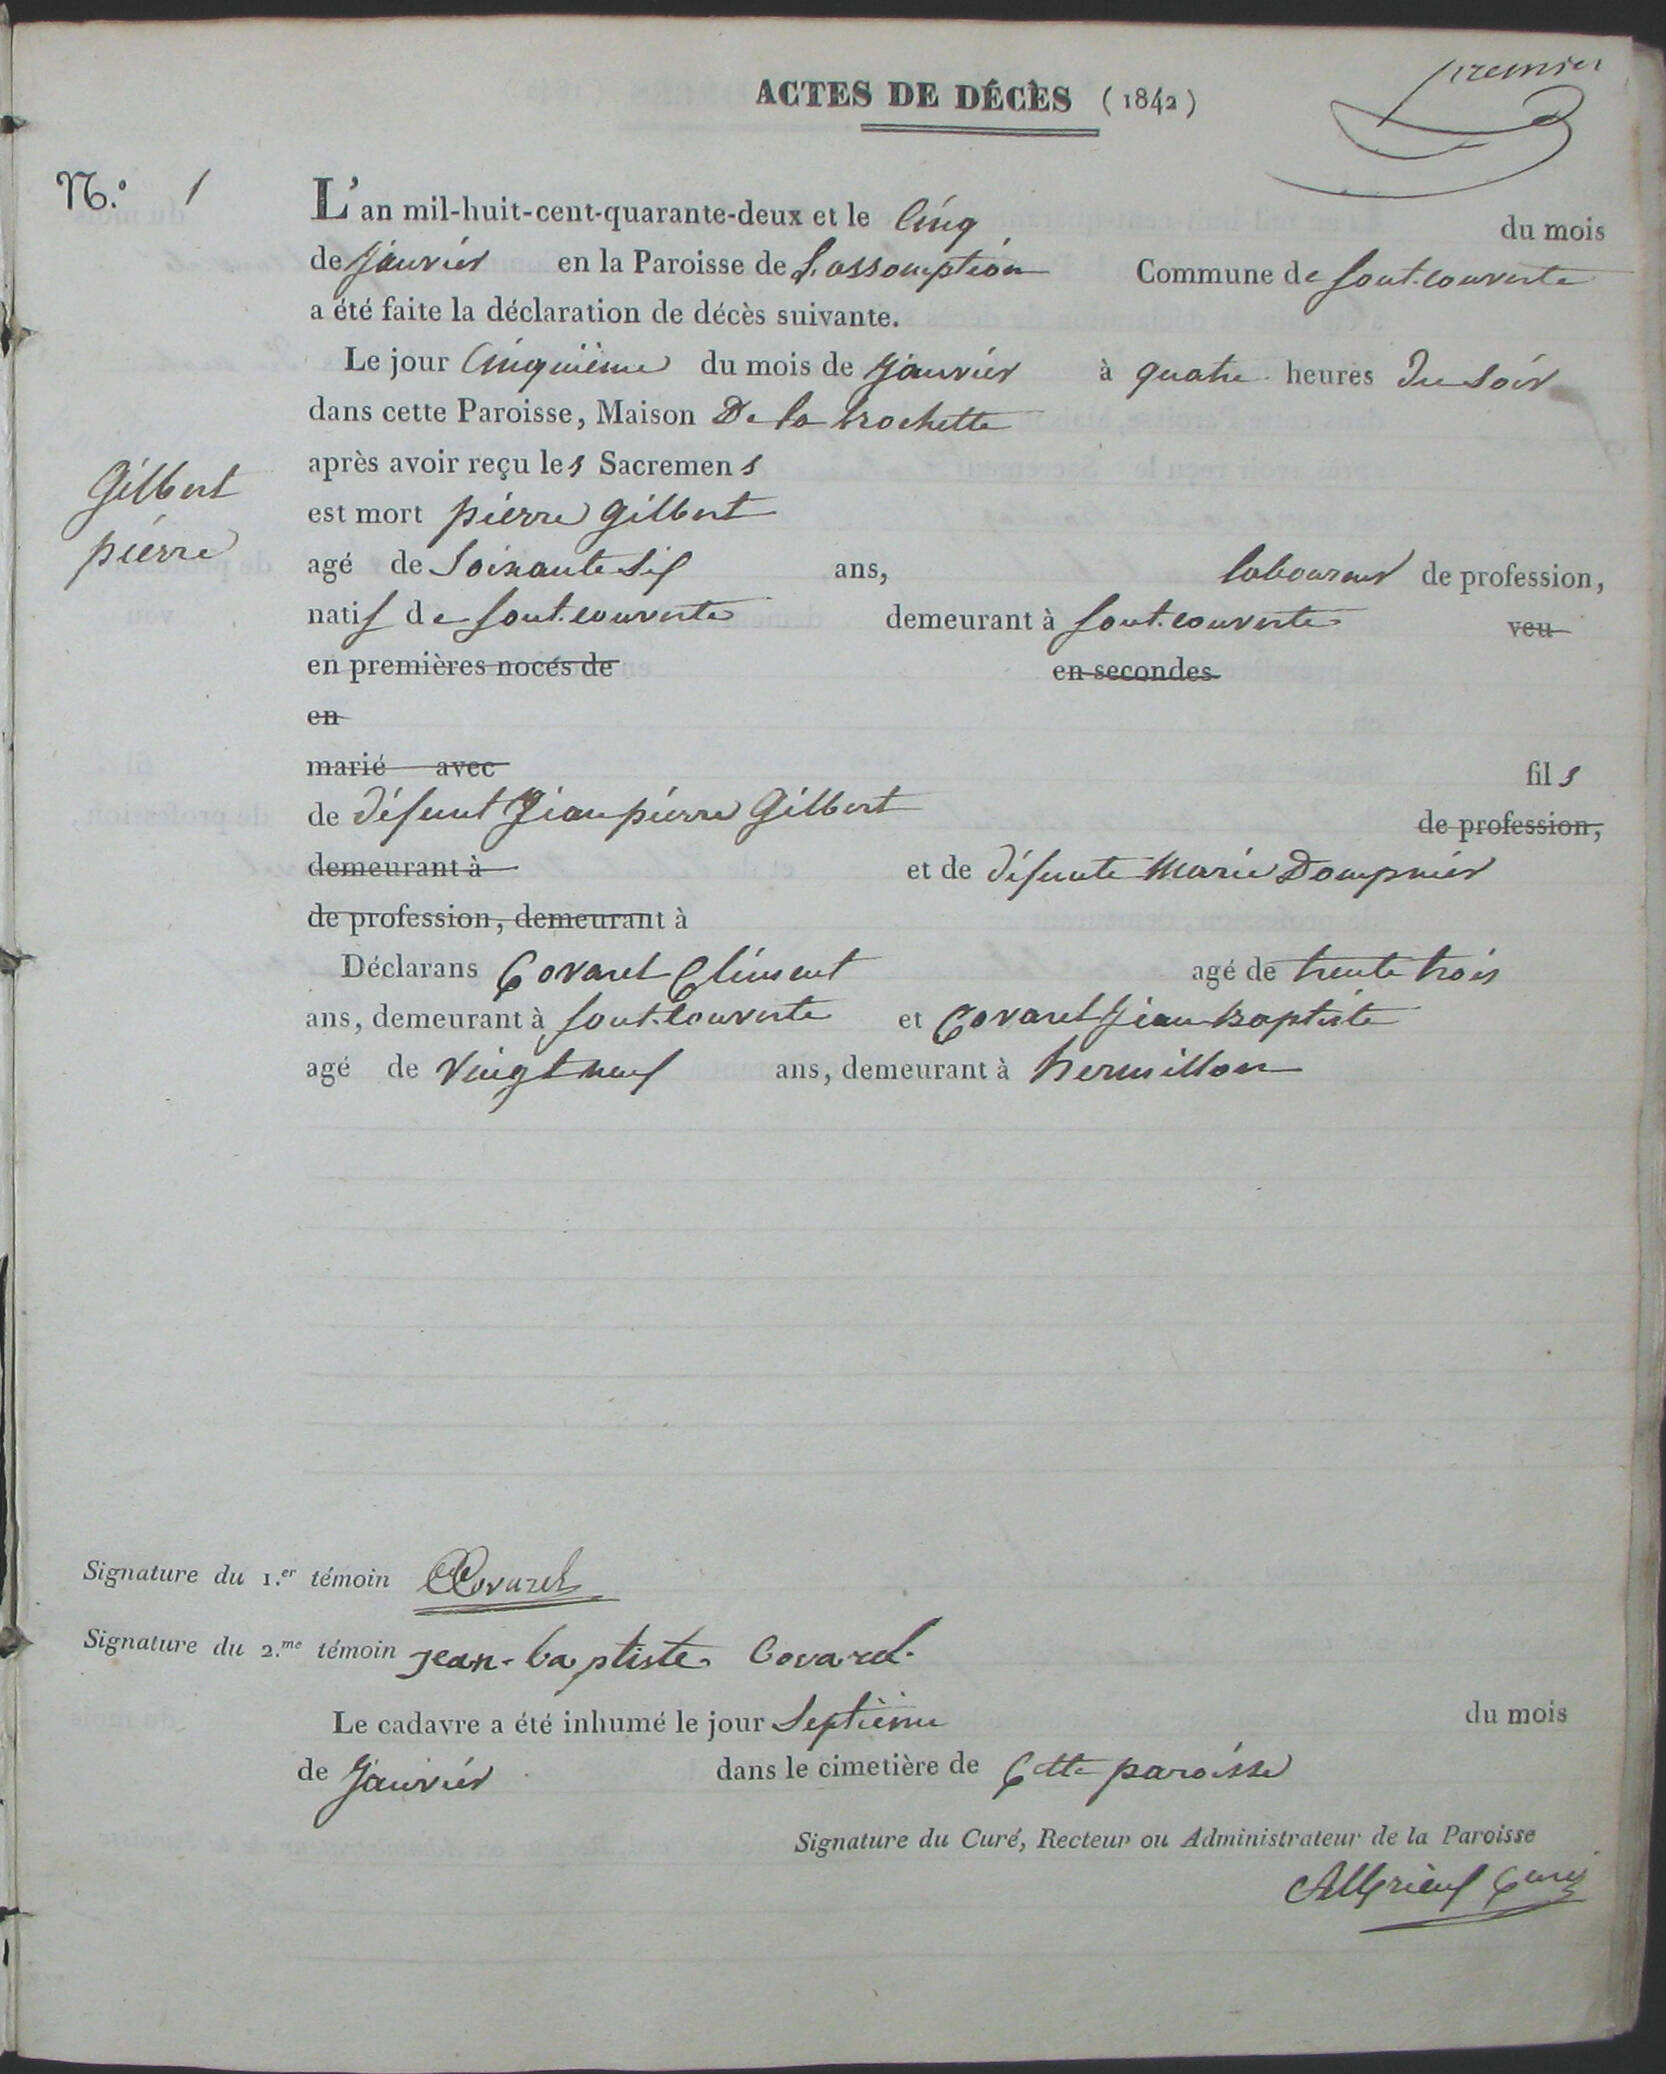 premier
ACTES DE DÉCÈS (1842)
N.º 1
L'an mil-huit-cent-quarante-deux et le Cinq du mois
de janvier en la Paroisse de L'assomption Commune de font.couverte
a été faite la déclaration de décès suivante.
Le jour Cinquième du mois de janvier à quatre heures Du soir
dans cette Paroisse, Maison De la brochette
après avoir reçu les Sacremens
est mort pierre gilbert
Gilbert
pierre
agé de Soixante six ans, laboureur de profession,
natif de font.couverte demeurant à font.couverte veu
en premières noces de en secondes
en
marié avec fils
de défunt Jean pierre Gilbert de profession,
demeurant à et de défunte Marie Dompnier
de profession, demeurant à
Déclarans Covarel Clément agé de trente trois
ans, demeurant à font.couverte et Covarel Jean baptiste
agé de vingt neuf ans, demeurant à hermillon
Signature du 1.er témoin CCovarel
Signature du 2.me témoin jean-baptiste Covarel.
Le cadavre a été inhumé le jour Septième du mois
de Janvier dans le cimetière de Cette paroisse
Signature du Curé, Recteur ou Administrateur de la Paroisse
Curé